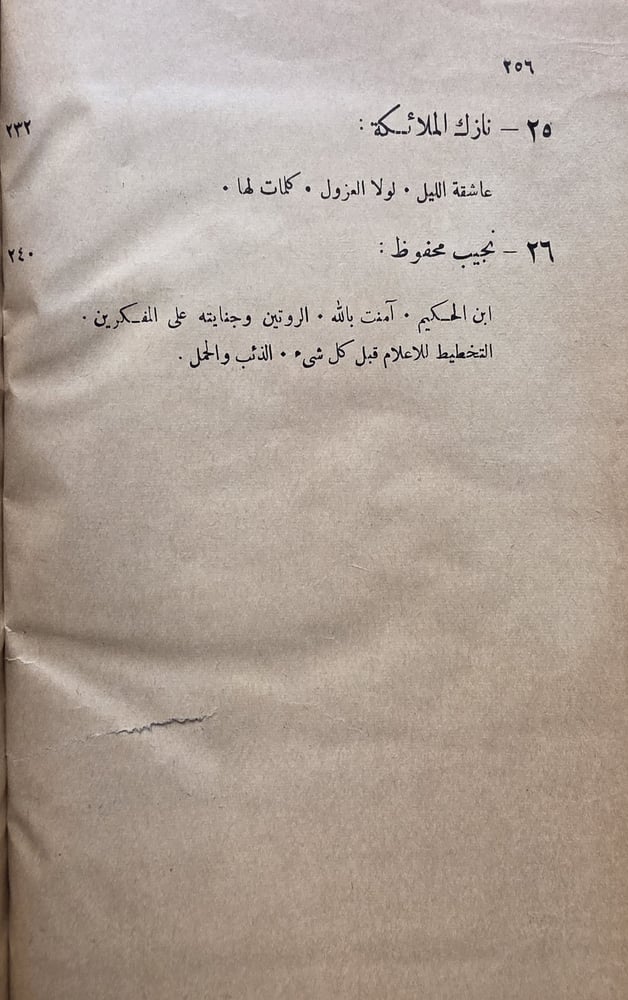 ٢٥٦
٢٥ — نازك الملائكة : ٢٣٢
عاشقة الليل ٠ لولا العزول ٠ كلمات لها ٠
٢٦ — نجيب محفوظ : ٢٤٠
ابن الحكيم ٠ آمنت بالله ٠ الروتين وجنايته على المفكرين ٠
التخطيط للاعلام قبل كل شىء ٠ الذئب والحمل ٠